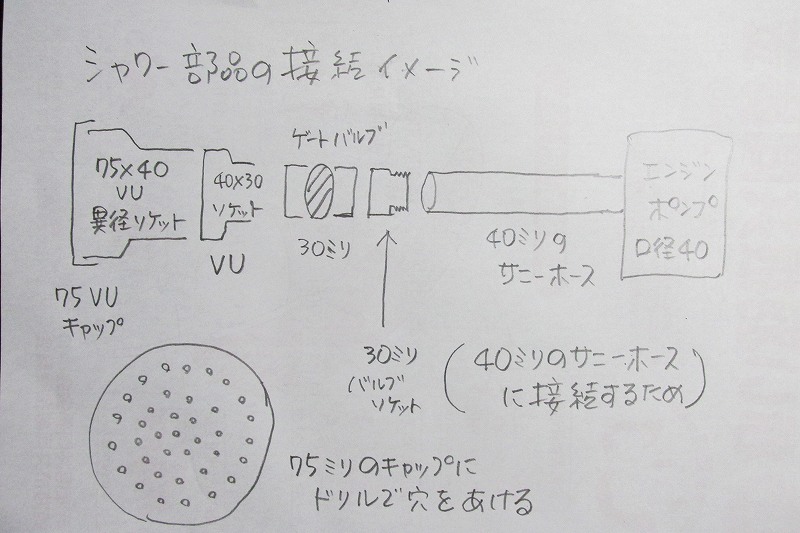 シャワー部品の接結イメージ
75×40
VU
異径ソケット
40×30
ソケット
VU
ゲートバルブ
30ミリ
エンジン
ポンプ
口径40
40ミリの
サニーホース
75VU
キャップ
30ミリ
バルブ
ソケット
(40ミリのサニーホース
に接結するため)
75ミリのキャップに
ドリルで穴をあける